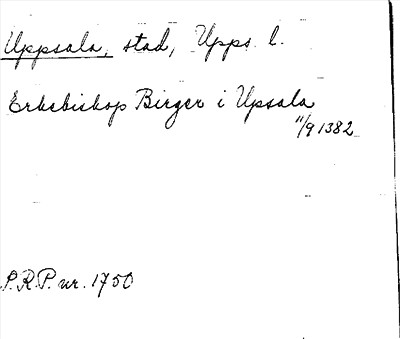 Uppsala, stad, Upps. l.
Erkebiskop Birger i Upsala
11/9 1382
P.R.P. nr. 1750